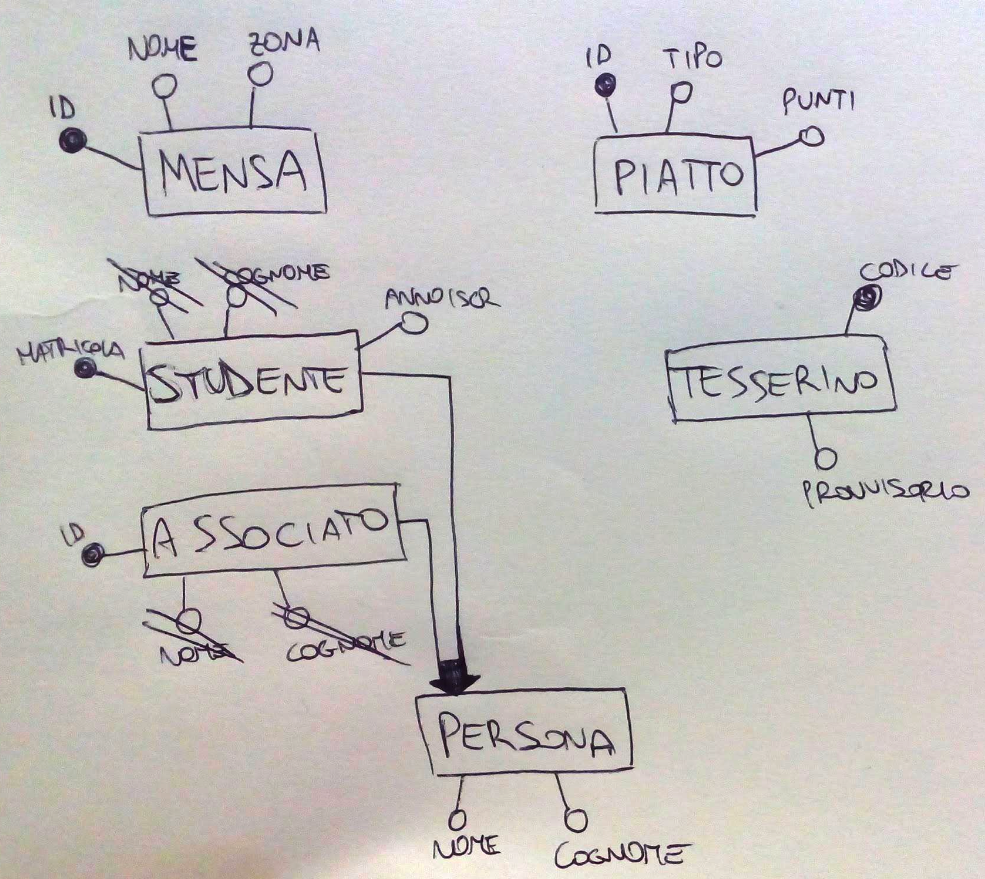 NOME
ZONA
ID
MENSA
ID
TIPO
PUNTI
PIATTO
NOME
COGNOME
ANNOISCR
MATRICOLA
STUDENTE
CODICE
TESSERINO
PROVVISORIO
ID
ASSOCIATO
NOME
COGNOME
PERSONA
NOME
COGNOME